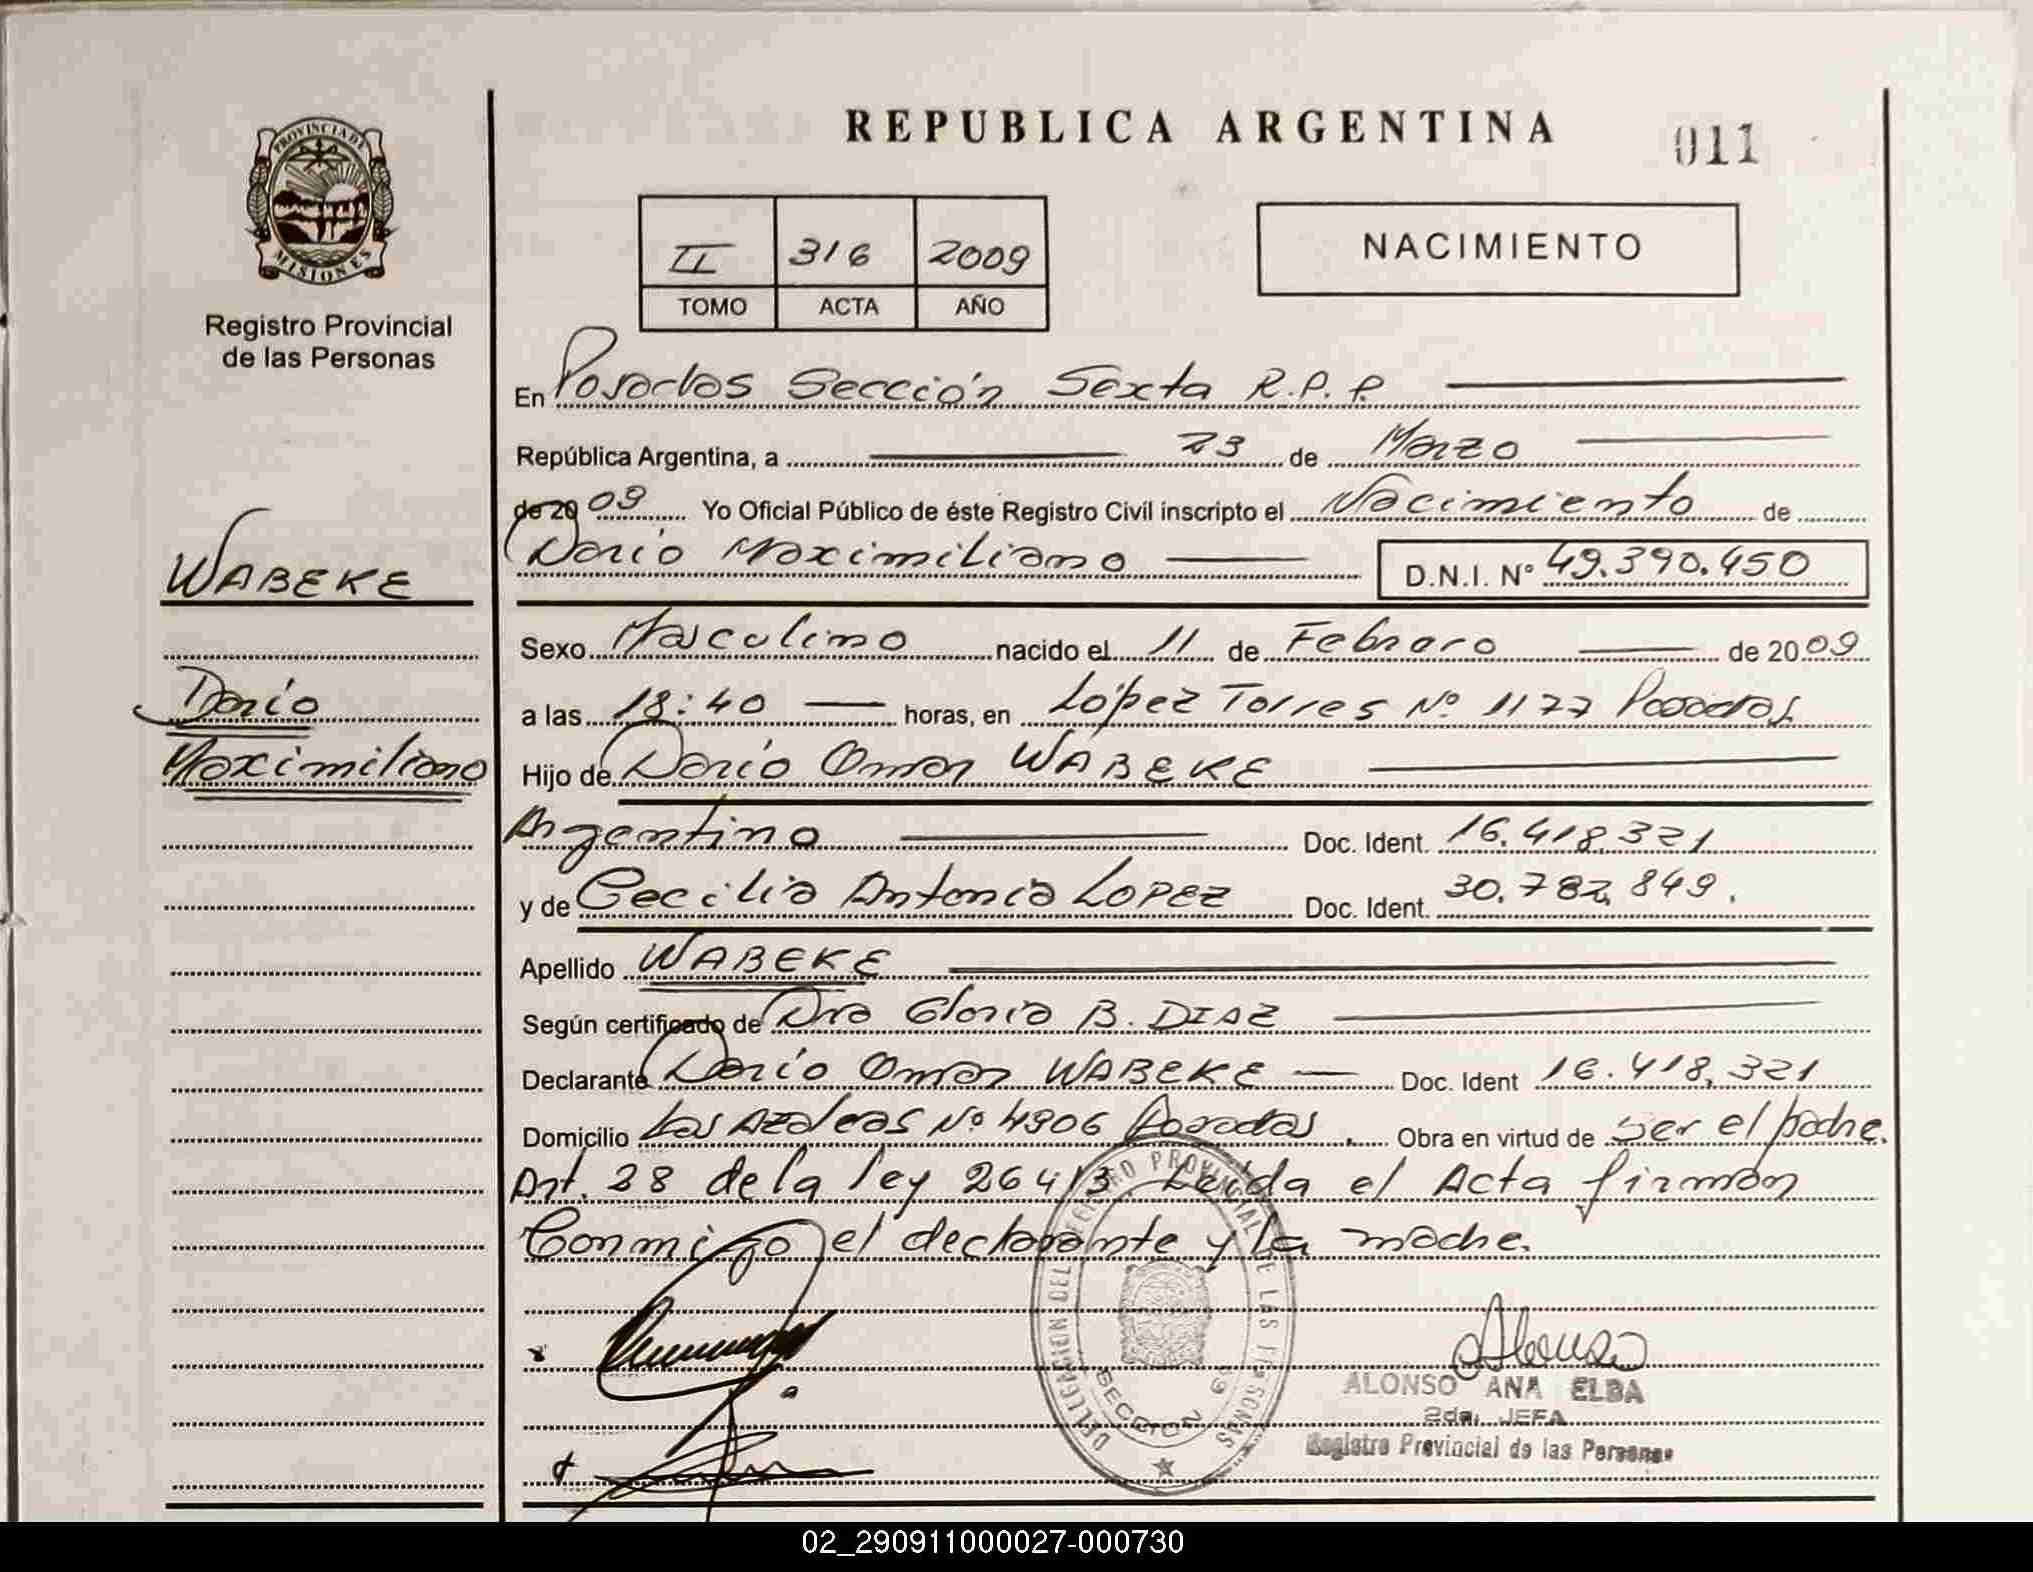 REPUBLICA ARGENTINA
011
PROVINCIA DE
MISIONES
Registro Provincial
de las Personas
II 316 2009
TOMO ACTA AÑO
NACIMIENTO
En Posadas Sección Sexta R.P.P.
República Argentina, a 23 de Marzo
de 2009 Yo Oficial Público de éste Registro Civil inscripto el Nacimiento de
Darío Maximiliano D.N.I. N° 49.390.450
WABEKE
Darío
Maximiliano
Sexo Masculino nacido el 11 de Febrero de 2009
a las 18:40 horas, en López Torres Nº 1177 Posadas
Hijo de Darío Omar WABEKE
Argentino Doc. Ident. 16.418.321
y de Cecilia Antonia LOPEZ Doc. Ident. 30.782.849.
Apellido WABEKE
Según certificado de Dra Gloria B. DIAZ
Declarante Darío Omar WABEKE Doc. Ident 16.418.321
Domicilio Las Azaleas Nº 4906 Posadas. Obra en virtud de ser el padre.
Art. 28 de la ley 26413 Leída el Acta firman
Conmigo el declarante y la madre.
DELEGACION DEL REGISTRO PROVINCIAL DE LAS PERSONAS
SECCION
ALONSO ANA ELBA
2da. JEFA
Registro Provincial de las Personas
02_290911000027-000730